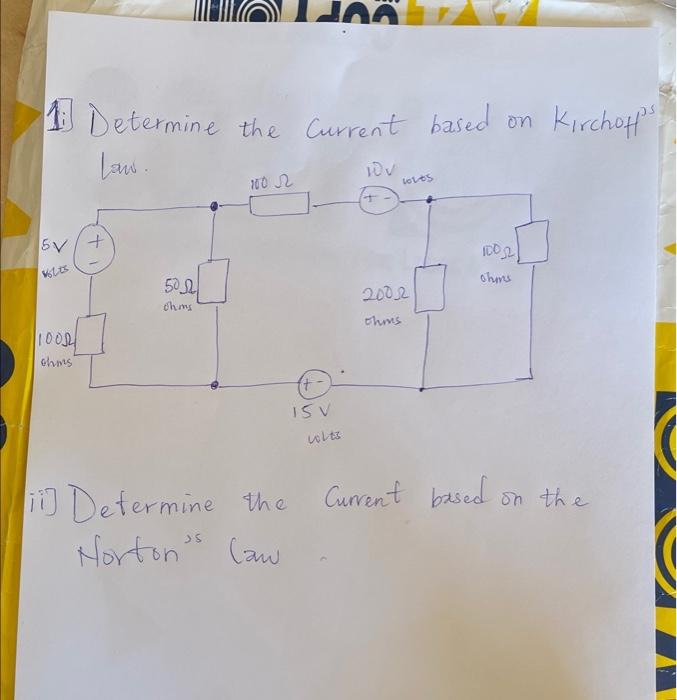 COPY
1i] Determine the Current based on Kirchoff's
Law.
100 Ω
10V
volts
+ -
5V
volts
+
-
50Ω
ohms
200Ω
ohms
100Ω
ohms
100Ω
ohms
+ -
15V
volts
ii] Determine the Current based on the
Norton's Law